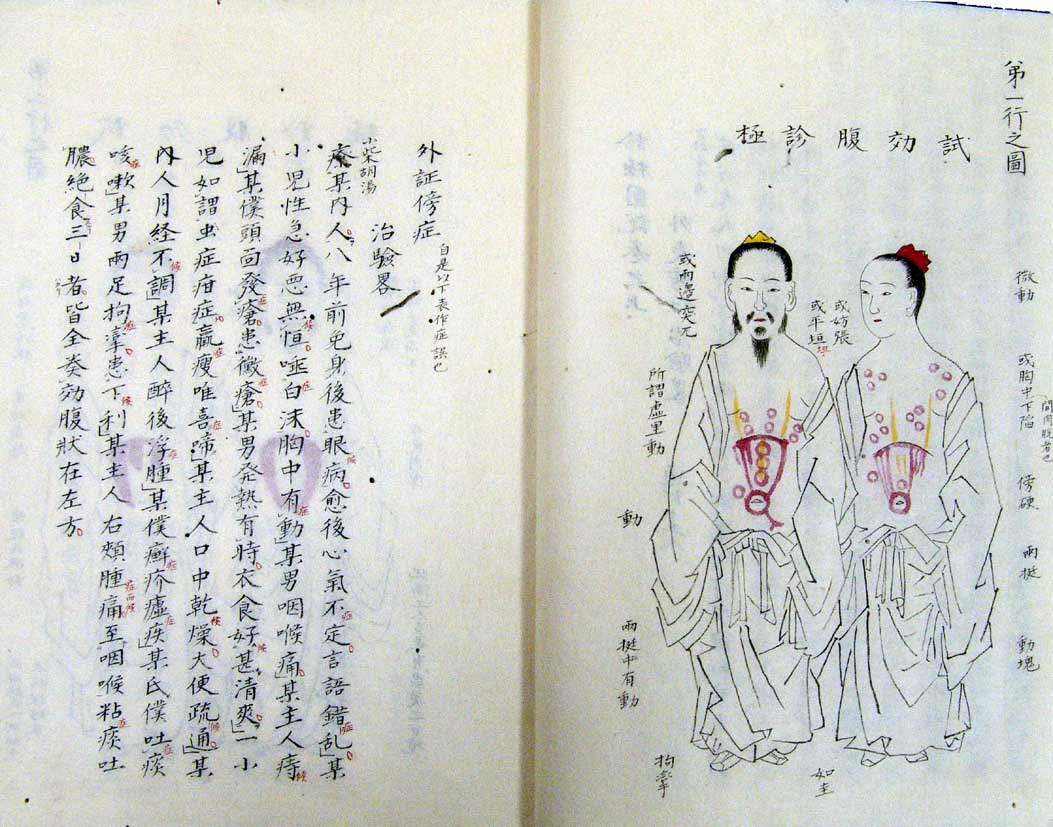 弟一行之圖
試効腹診極
微動
或胸中下陷
傍硬
兩挺
動塊
或妨張
或平垣
坦
如圭
或兩邊突兀
所謂虚里動
動
兩挺中有動
拘挛
外証傍症
自是以下表作症誤也
治驗畧
小柴胡湯
某内人八年前免身後患眼病愈後心氣不定言語錯乱某
小児性急好悪無恒唾白沫胸中有動某男咽喉痛某主人痔
漏某僕頭面發瘡患黴瘡某男発熱有時衣食好甚清爽一小
児如謂虫症疳症羸瘦唯喜蹄某主人口中乾燥大便疏通某
內人月経不調某主人醉後浮腫某僕癬疥瘧疾某氏僕吐痰
咳嗽某男兩足拘挛患下利某主人右頬腫痛至咽喉粘痰吐
膿絶食三日者皆全奏効腹狀在左方